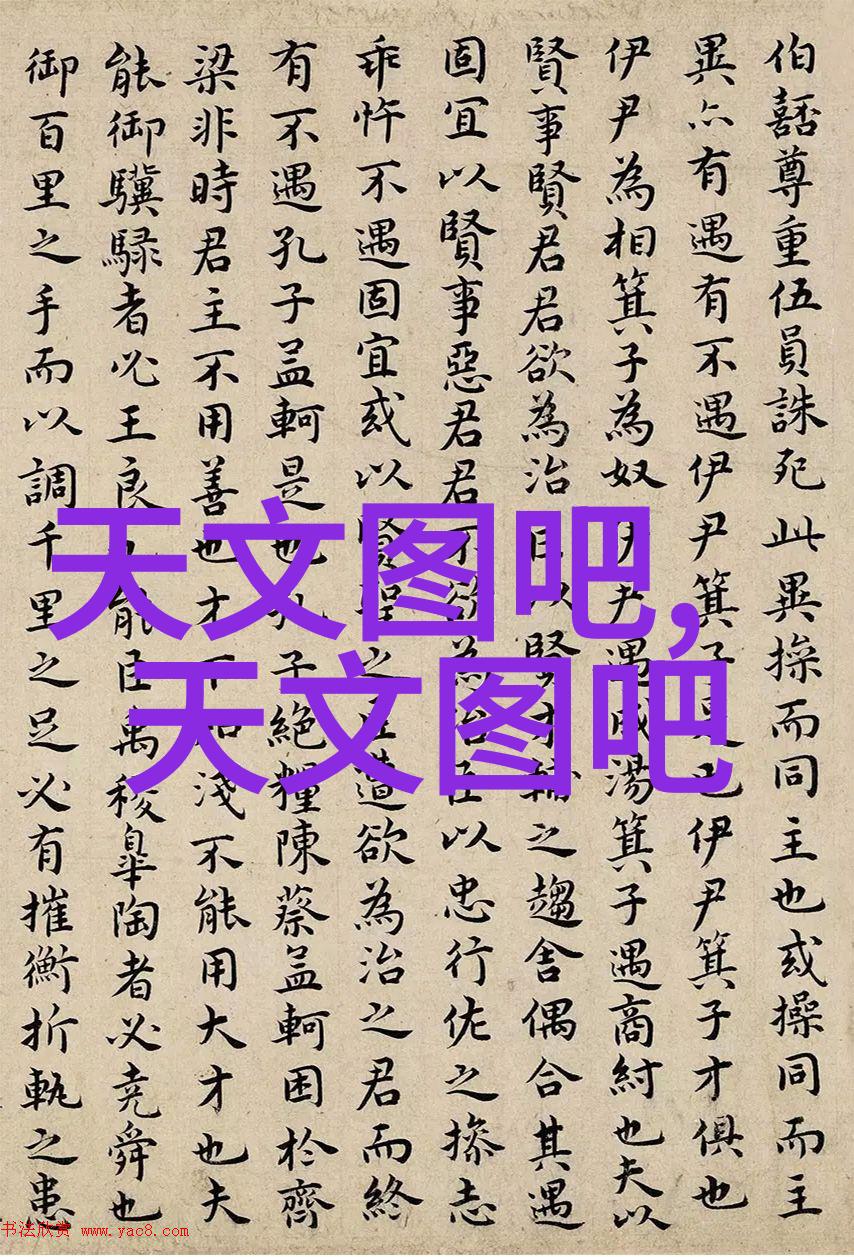 伯嚭尊重伍員誅死此異操而同主也或操同而主
異亦有遇有不遇伊尹箕子是也伊尹箕子才俱也
伊尹為相箕子為奴伊尹遇成湯箕子遇商紂也夫以
賢事賢君君欲為治臣以賢才輔之趨舍偶合其遇
固宜以賢事惡君君不欲為治臣以忠行佐之操志
乖忤不遇固宜或以賢聖之臣遭欲為治之君而終
有不遇孔子孟軻是也孔子絕糧陳蔡孟軻困於齊
梁非時君主不用善也才下知淺不能用大才也夫
能御驥騄者必王良也能臣禹稷皐陶者必堯舜也
御百里之手而以調千里之足必有摧衡折軛之患
天文图吧,
天文图吧
书法欣赏 www.yac8.com